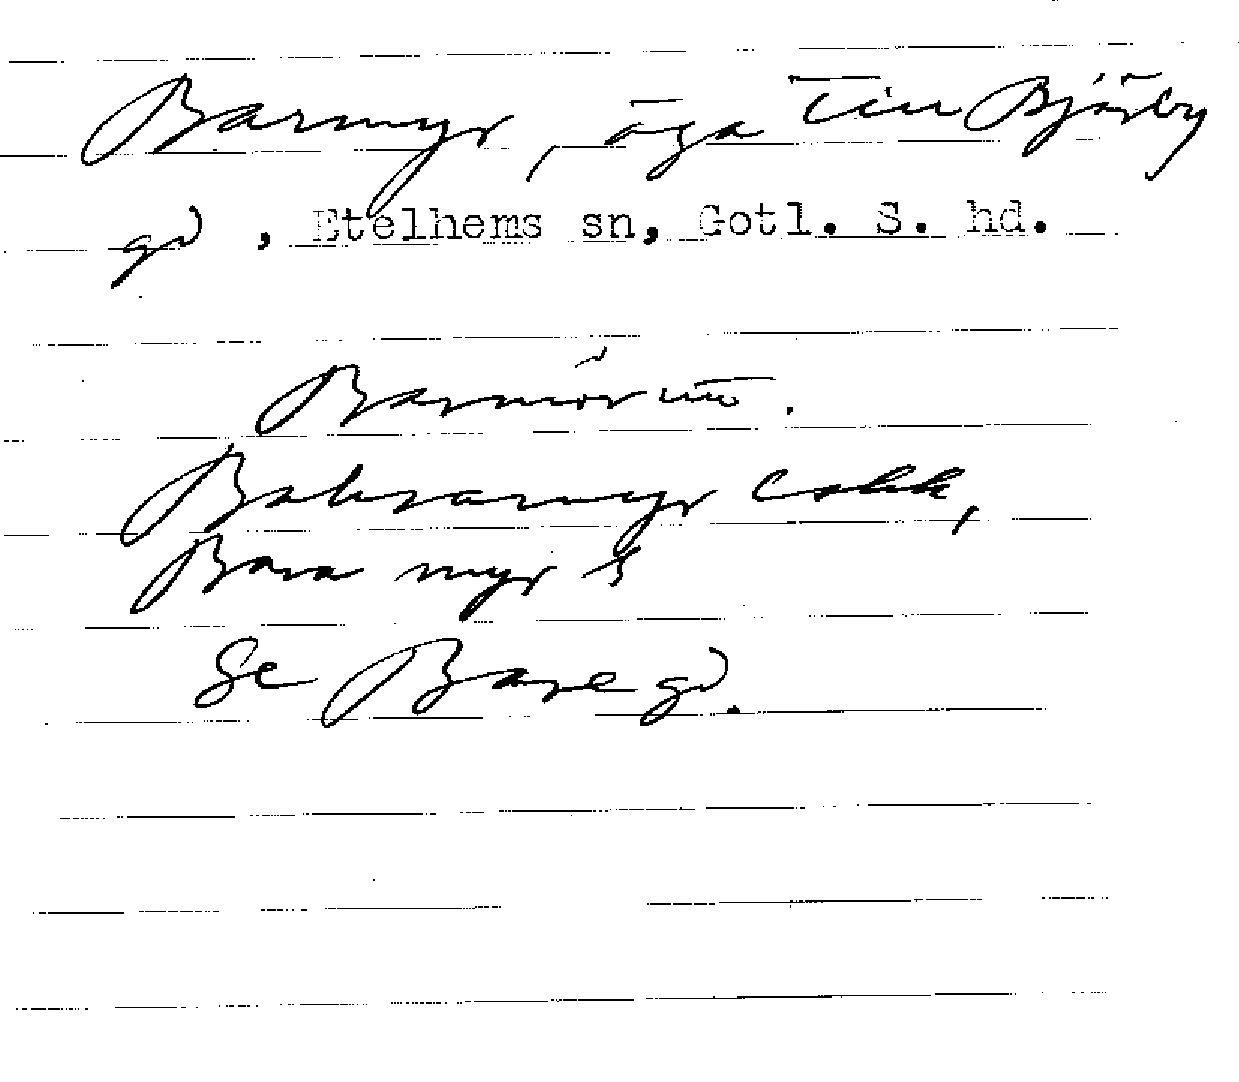 Barmyr, äga till Björby
gd, Etelhems sn, Gotl. S. hd.
Barmör
Bahramyr
Bara myr
Se Bare gd.